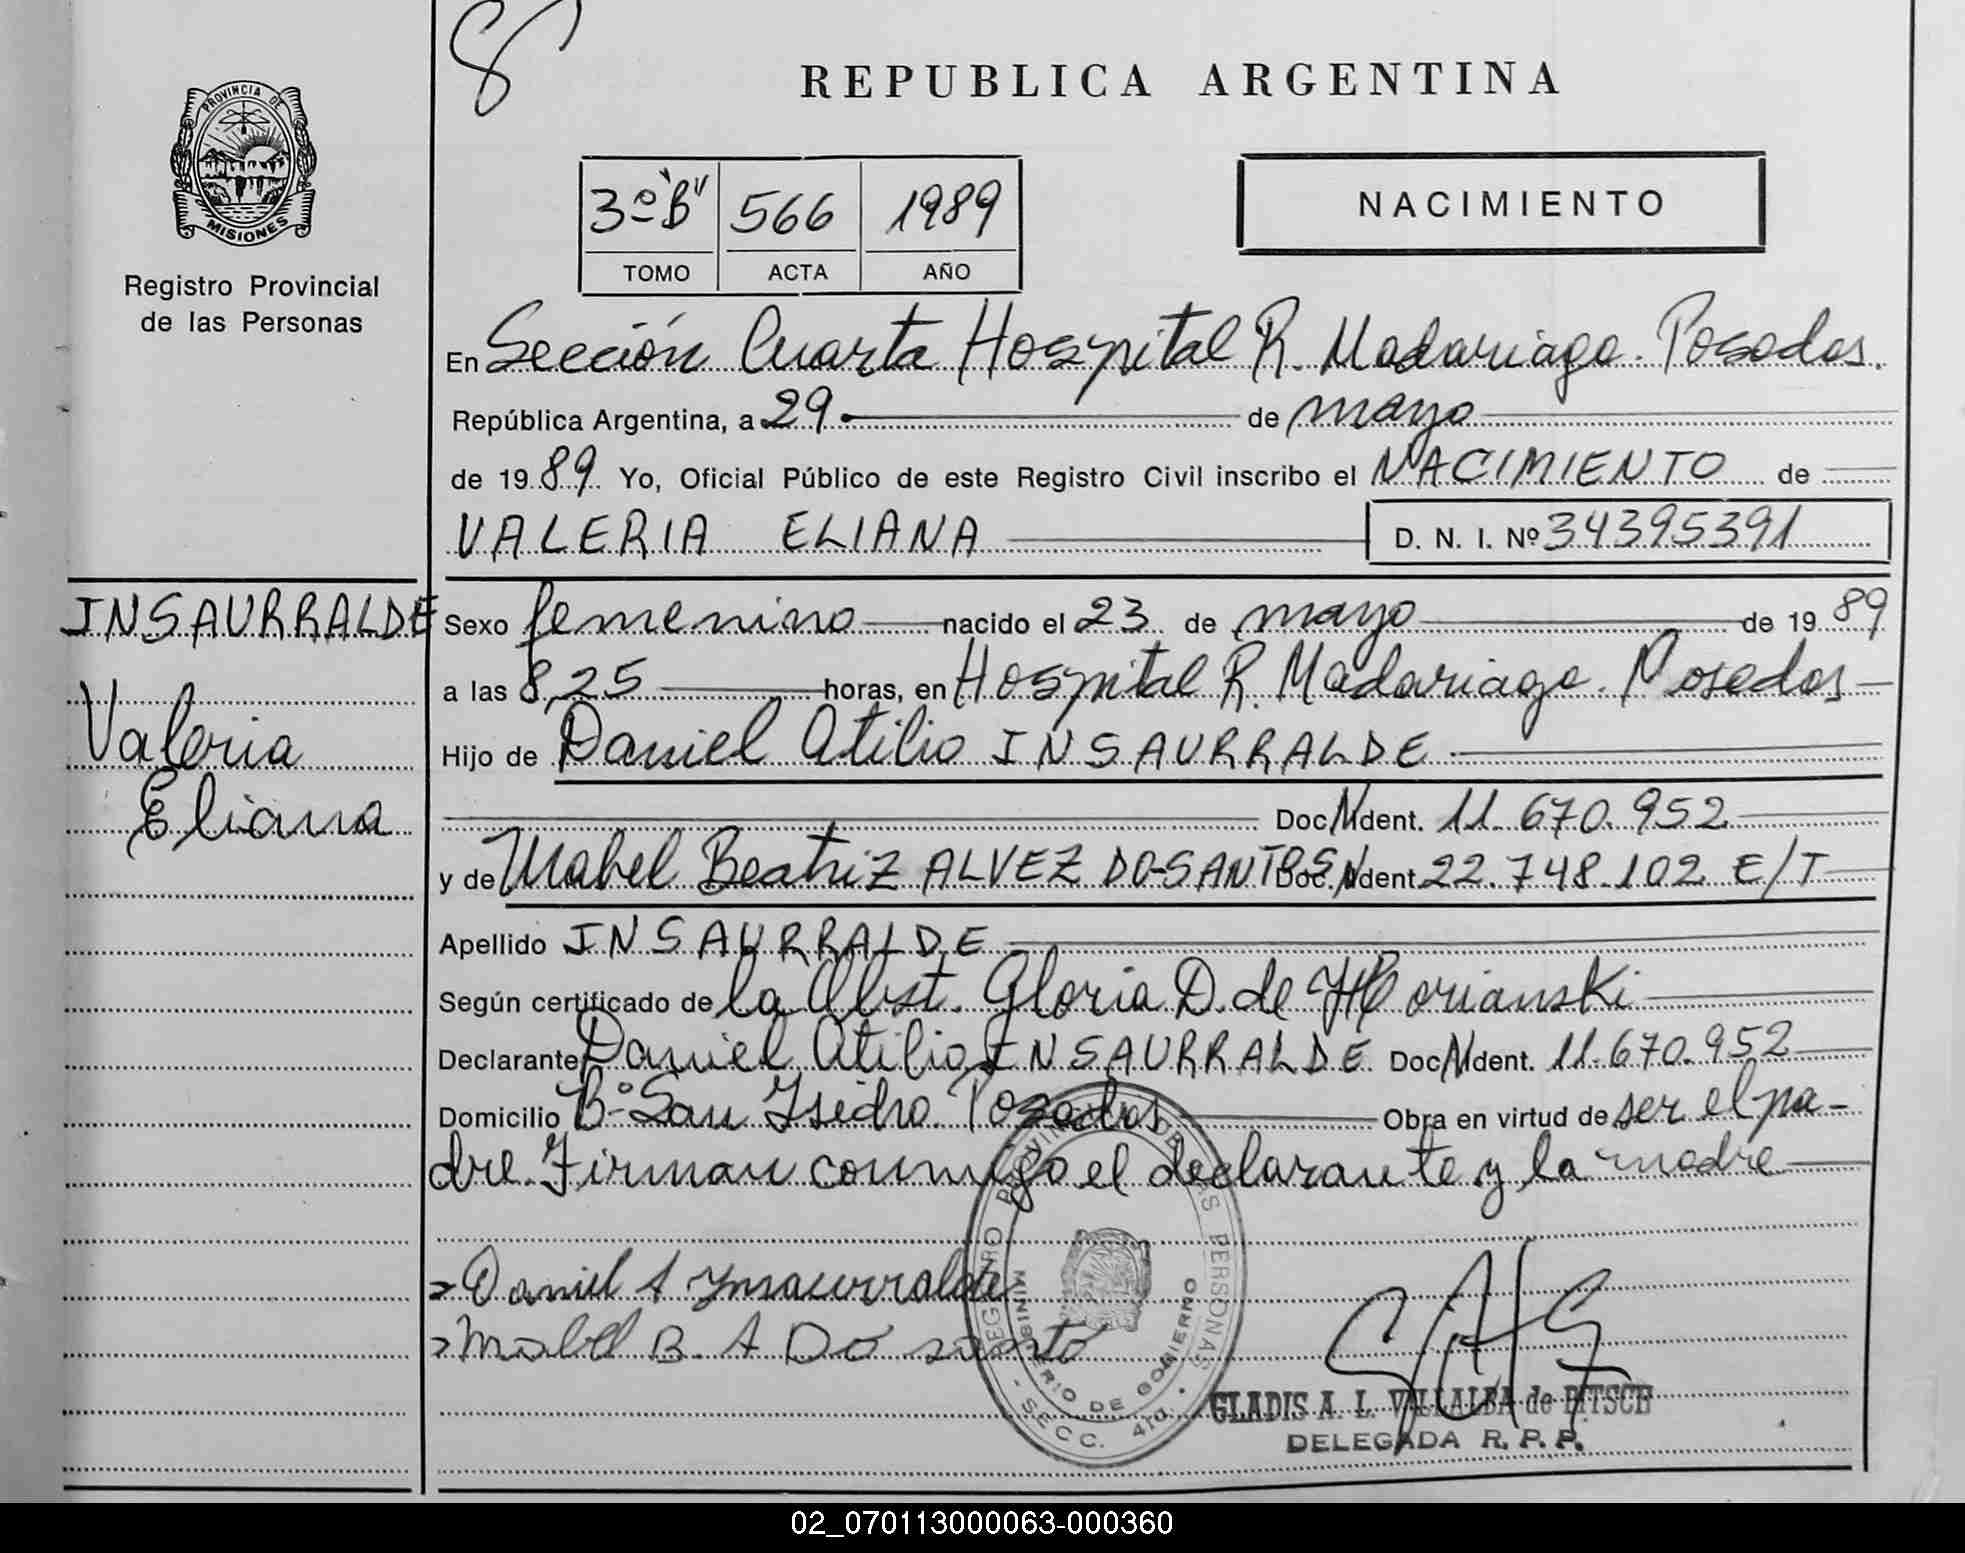 REPUBLICA ARGENTINA
PROVINCIA DE
MISIONES
Registro Provincial
de las Personas
3º "B" 566 1989
TOMO ACTA AÑO
NACIMIENTO
En Sección Cuarta Hospital R. Madariaga. Posadas.
República Argentina, a 29 de mayo
de 1989 Yo, Oficial Público de este Registro Civil inscribo el NACIMIENTO de
VALERIA ELIANA D. N. I. Nº 34395391
INSAURRALDE
Valeria
Eliana
Sexo femenino nacido el 23 de mayo de 1989
a las 8,25 horas, en Hospital R. Madariaga. Posadas
Hijo de Daniel Atilio INSAURRALDE
Doc. Ident. 11.670.952
y de Mabel Beatriz ALVEZ DO-SANTOS Doc. Ident. 22.748.102 E/T
Apellido INSAURRALDE
Según certificado de la Obst. Gloria D. de
Declarante Daniel Atilio INSAURRALDE Doc. Ident. 11.670.952
Domicilio Bº San Isidro. Posadas Obra en virtud de ser el pa-
dre. Firman conmigo el declarante y la madre
Daniel A Ynsaurralde
Mabel B. A Do santo
REGISTRO PROVINCIAL DE LAS PERSONAS
MINISTERIO DE GOBIERNO
- SECC. 4ta. -
GLADIS A. L. VILLALBA de
DELEGADA R. P. P.
02_070113000063-000360